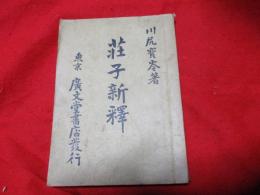 川尻寳岑著
莊子新釋
東京 廣文堂書店發行